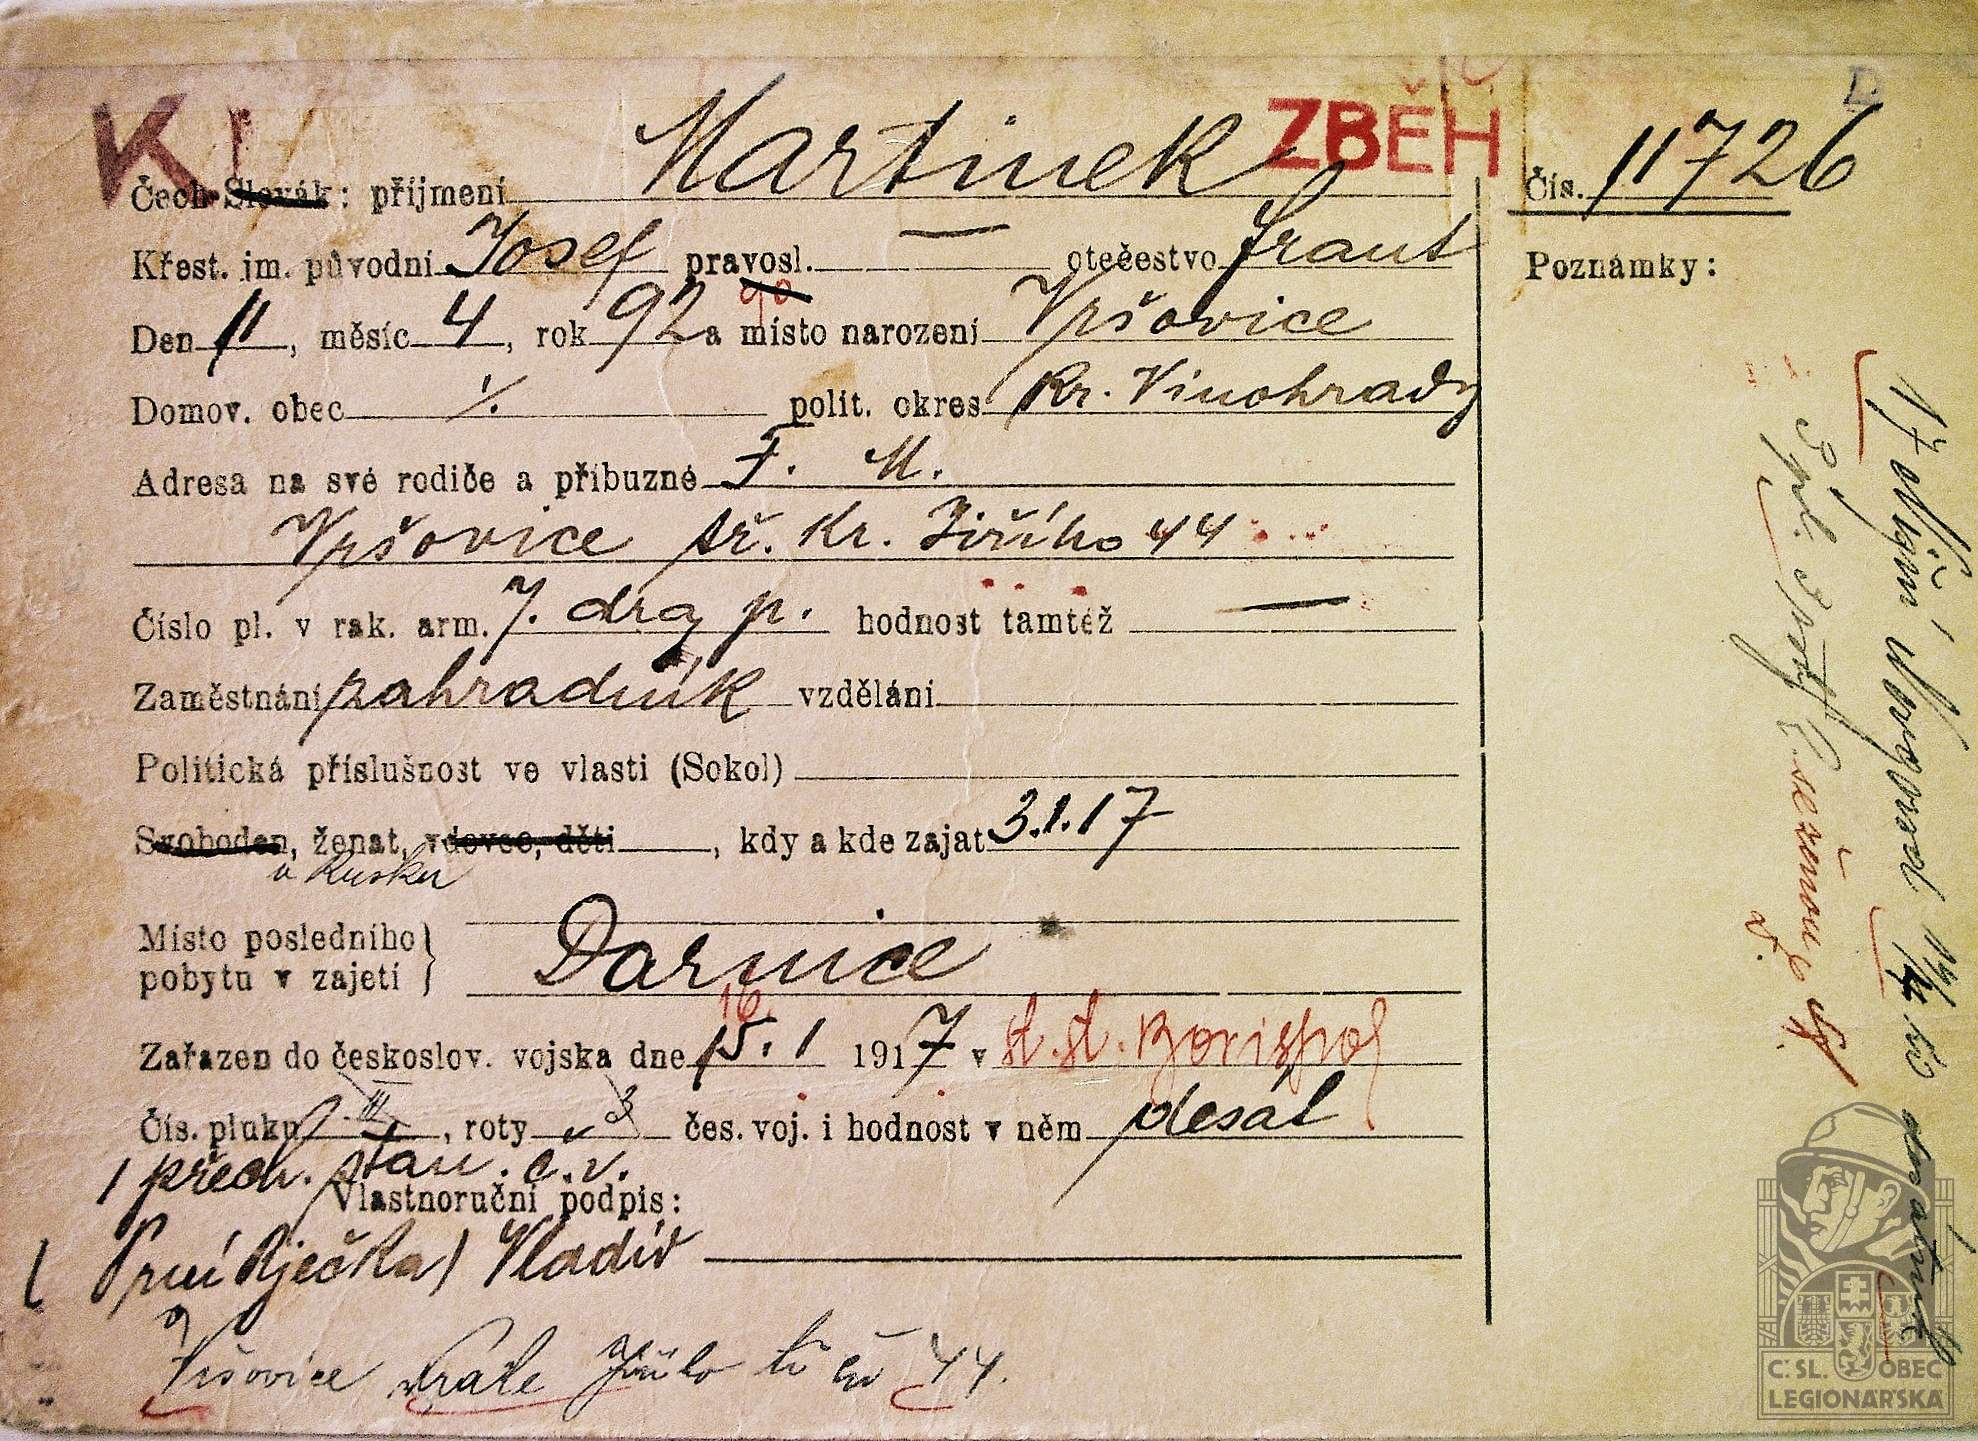 K
ZBĚH
Čech-Slovák: příjmení Martinek
Čís. 11726
Křest. jm. původní Josef pravosl. — otečestvo Frant
Poznámky:
90
Den 11, měsíc 4, rok 92 a místo narození Vršovice
Domov. obec ./. polit. okres Kr. Vinohrady
Adresa na své rodiče a příbuzné F. M.
Vršovice tř. Kr. Jiřího 44
Číslo pl. v rak. arm. 7. drag p. hodnost tamtéž —
Zaměstnání zahradník vzdělání
Politická příslušnost ve vlasti (Sokol)
Svoboden, ženat, vdovec, děti, kdy a kde zajat 3.1.17
v Rusku
Místo posledního
pobytu v zajetí } Darnice
16
Zařazen do českoslov. vojska dne 15. 1 1917 v st. st. Borispol
Čís. pluku III, roty 3 čes. voj. i hodnost v něm desát
1 přech. stan. č. v.
Vlastnoruční podpis:
(První Rječka) Vladiv
Vršovice Krále Jiřího tř čís 44.
Č. SL. OBEC
LEGIONÁŘSKÁ